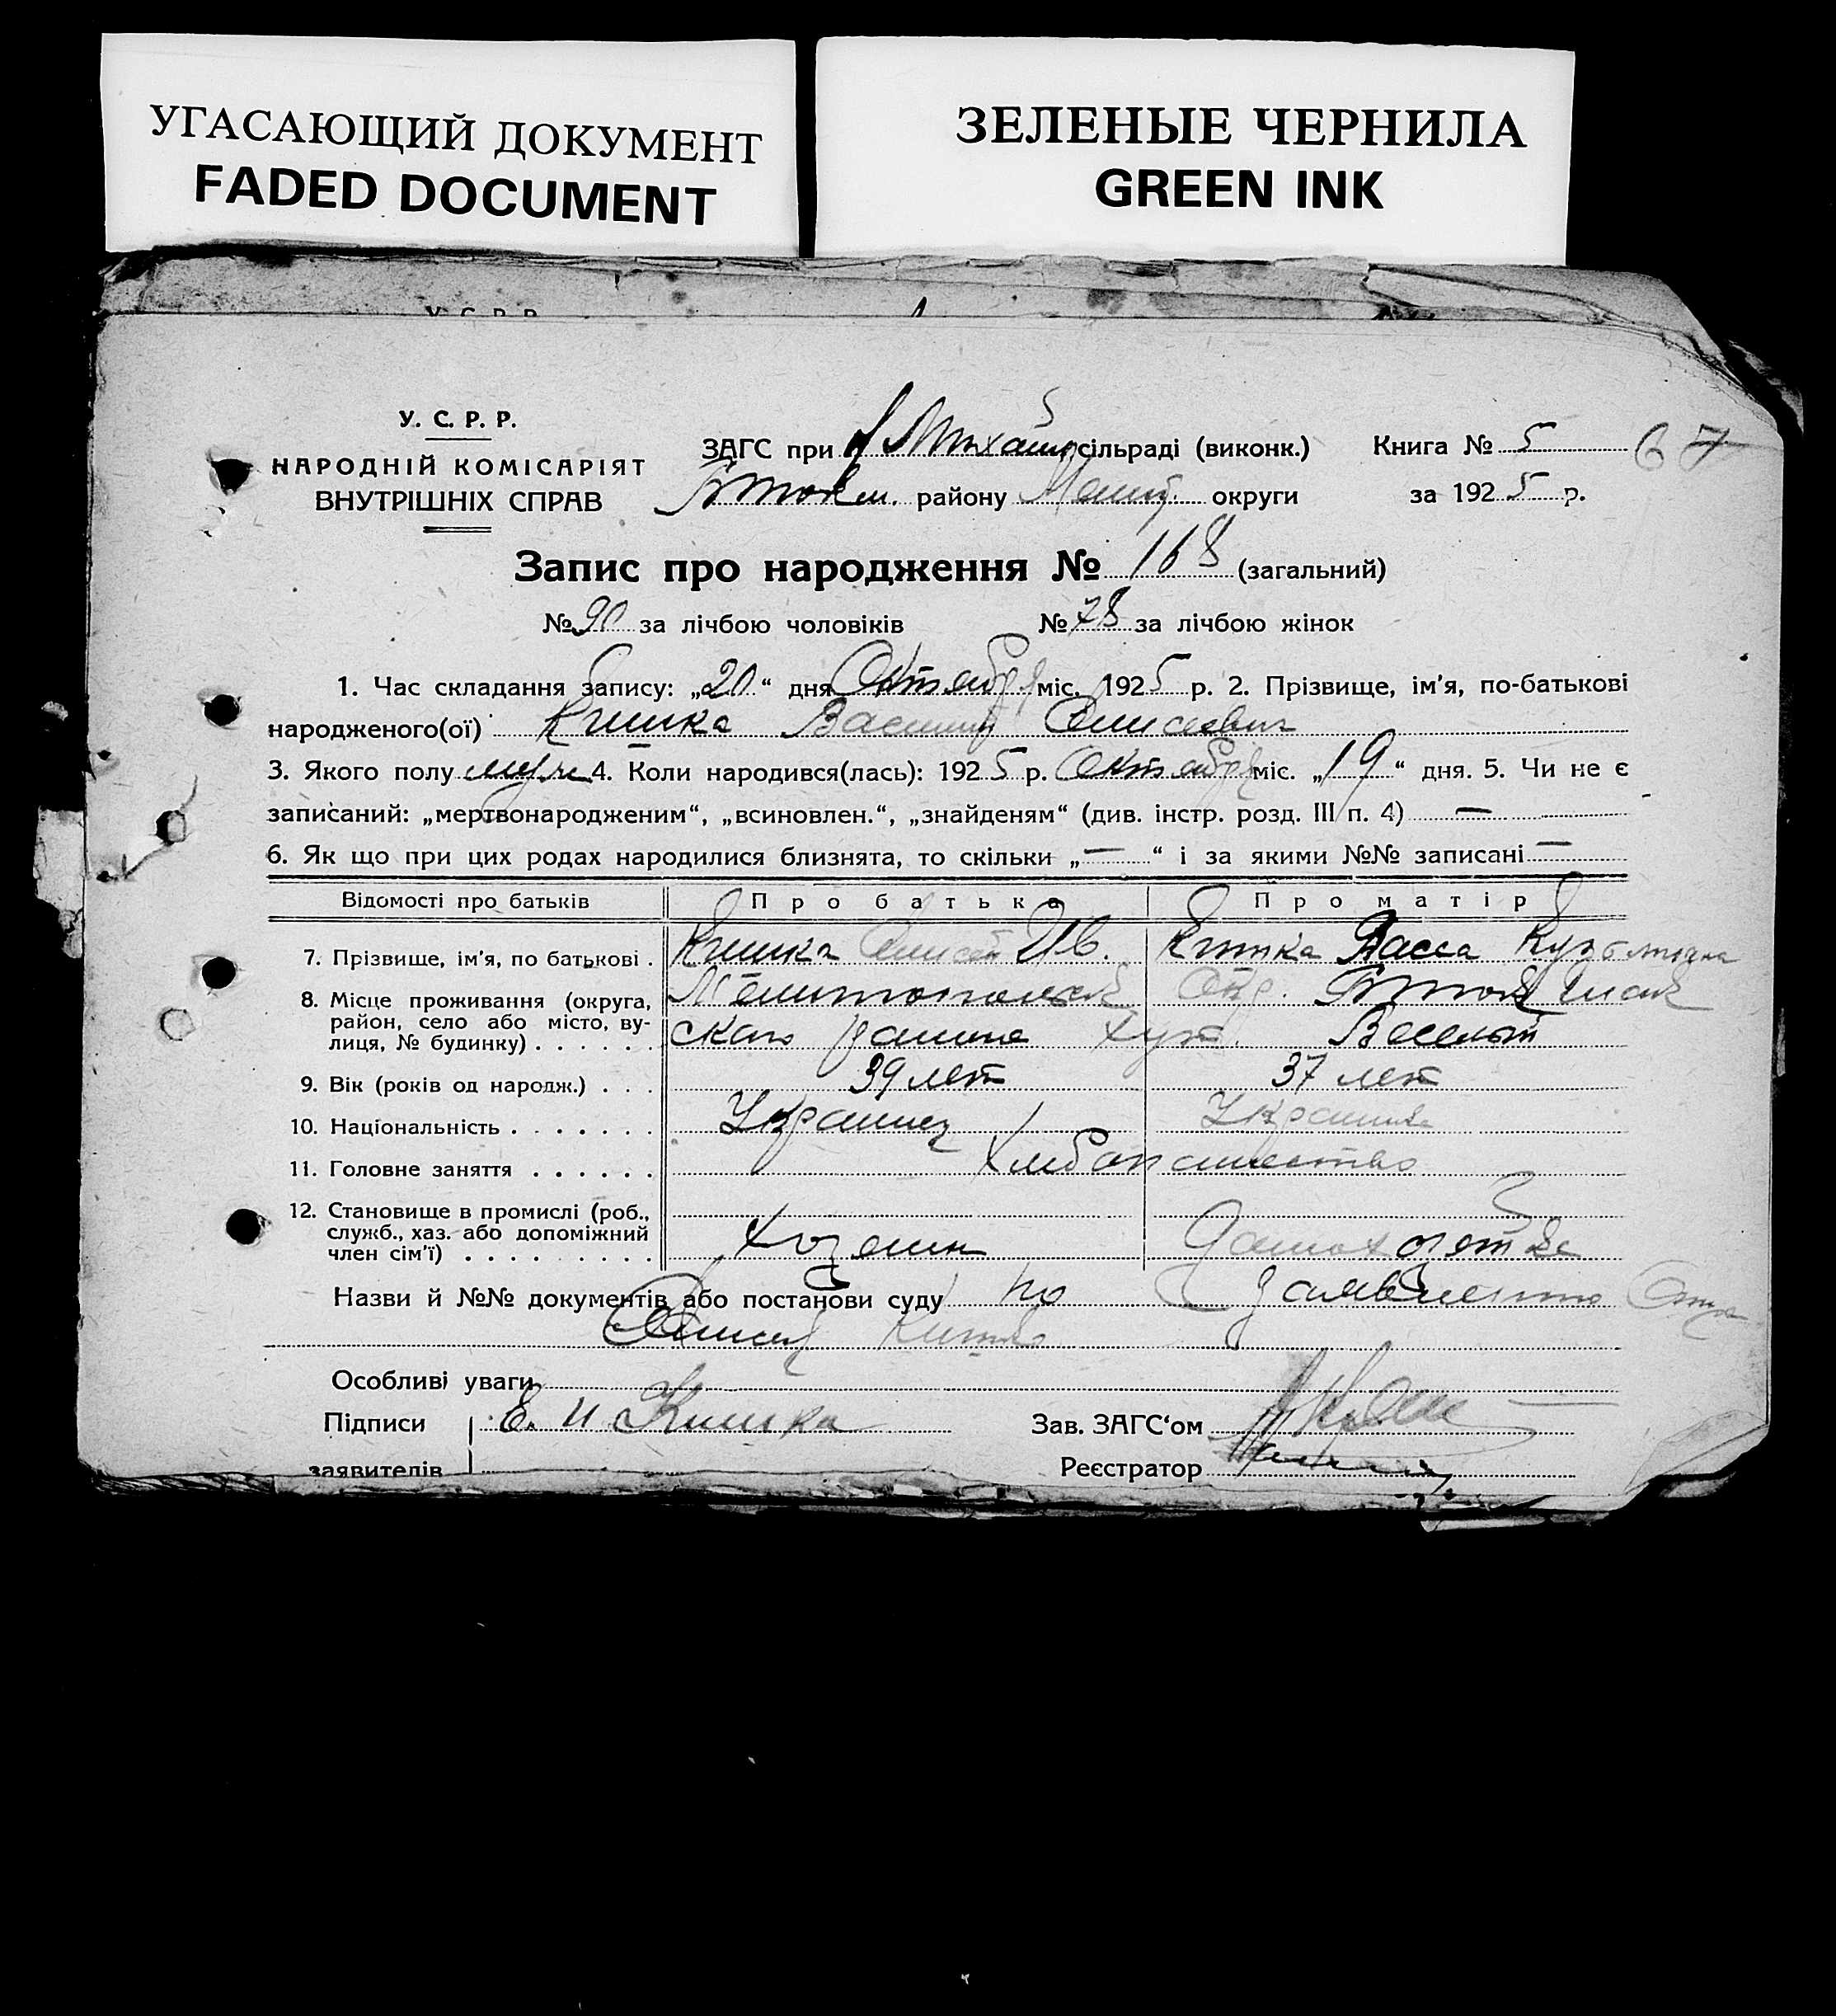 УГАСАЮЩИЙ ДОКУМЕНТ
FADED DOCUMENT
ЗЕЛЕНЫЕ ЧЕРНИЛА
GREEN INK
У. С. Р. Р.
У. С. Р. Р.
НАРОДНІЙ КОМІСАРІЯТ
ВНУТРІШНІХ СПРАВ
ЗАГС при сільраді (виконк.) Книга № 5 67
району Меліт. округи за 1925 р.
Запис про народження № 168 (загальний)
№ 90 за лічбою чоловіків № 78 за лічбою жінок
1. Час складання запису: „20“ дня Октября міс. 1925 р. 2. Прізвище, ім'я, по-батькові
народженого(ої) Кишка Василий Елисеевич
3. Якого полу муж. 4. Коли народився(лась): 1925 р. Октября міс. „19“ дня. 5. Чи не є
записаний: „мертвонародженим“, „всиновлен.“, „знайденям“ (див. інстр. розд. III п. 4) —
6. Як що при цих родах народилися близнята, то скільки „—“ і за якими №№ записані —
Відомості про батьків Про батька Про матір
7. Прізвище, ім'я, по батькові . Кишка Елисей Ив. Кишка Васса Кузьминична
8. Місце проживання (округа, Мелитопольск Окр.
район, село або місто, ву- ского района Хут. Веселый
лиця, № будинку) . . . . . .
9. Вік (років од народж.) . . . 39 лет 37 лет
10. Національність . . . . . . . Украинец Украинка
11. Головне заняття . . . . . . Хлебопашество
12. Становище в промислі (роб.,
служб., хаз. або допоміжний
член сім'ї) . . . . . . . . . Хозяин Домохозяйка
Назви й №№ документів або постанови суду по заявлению Отца
Елисей Кишка
Особливі уваги
Підписи Е. И Кишка Зав. ЗАГС'ом
заявителів Реєстратор